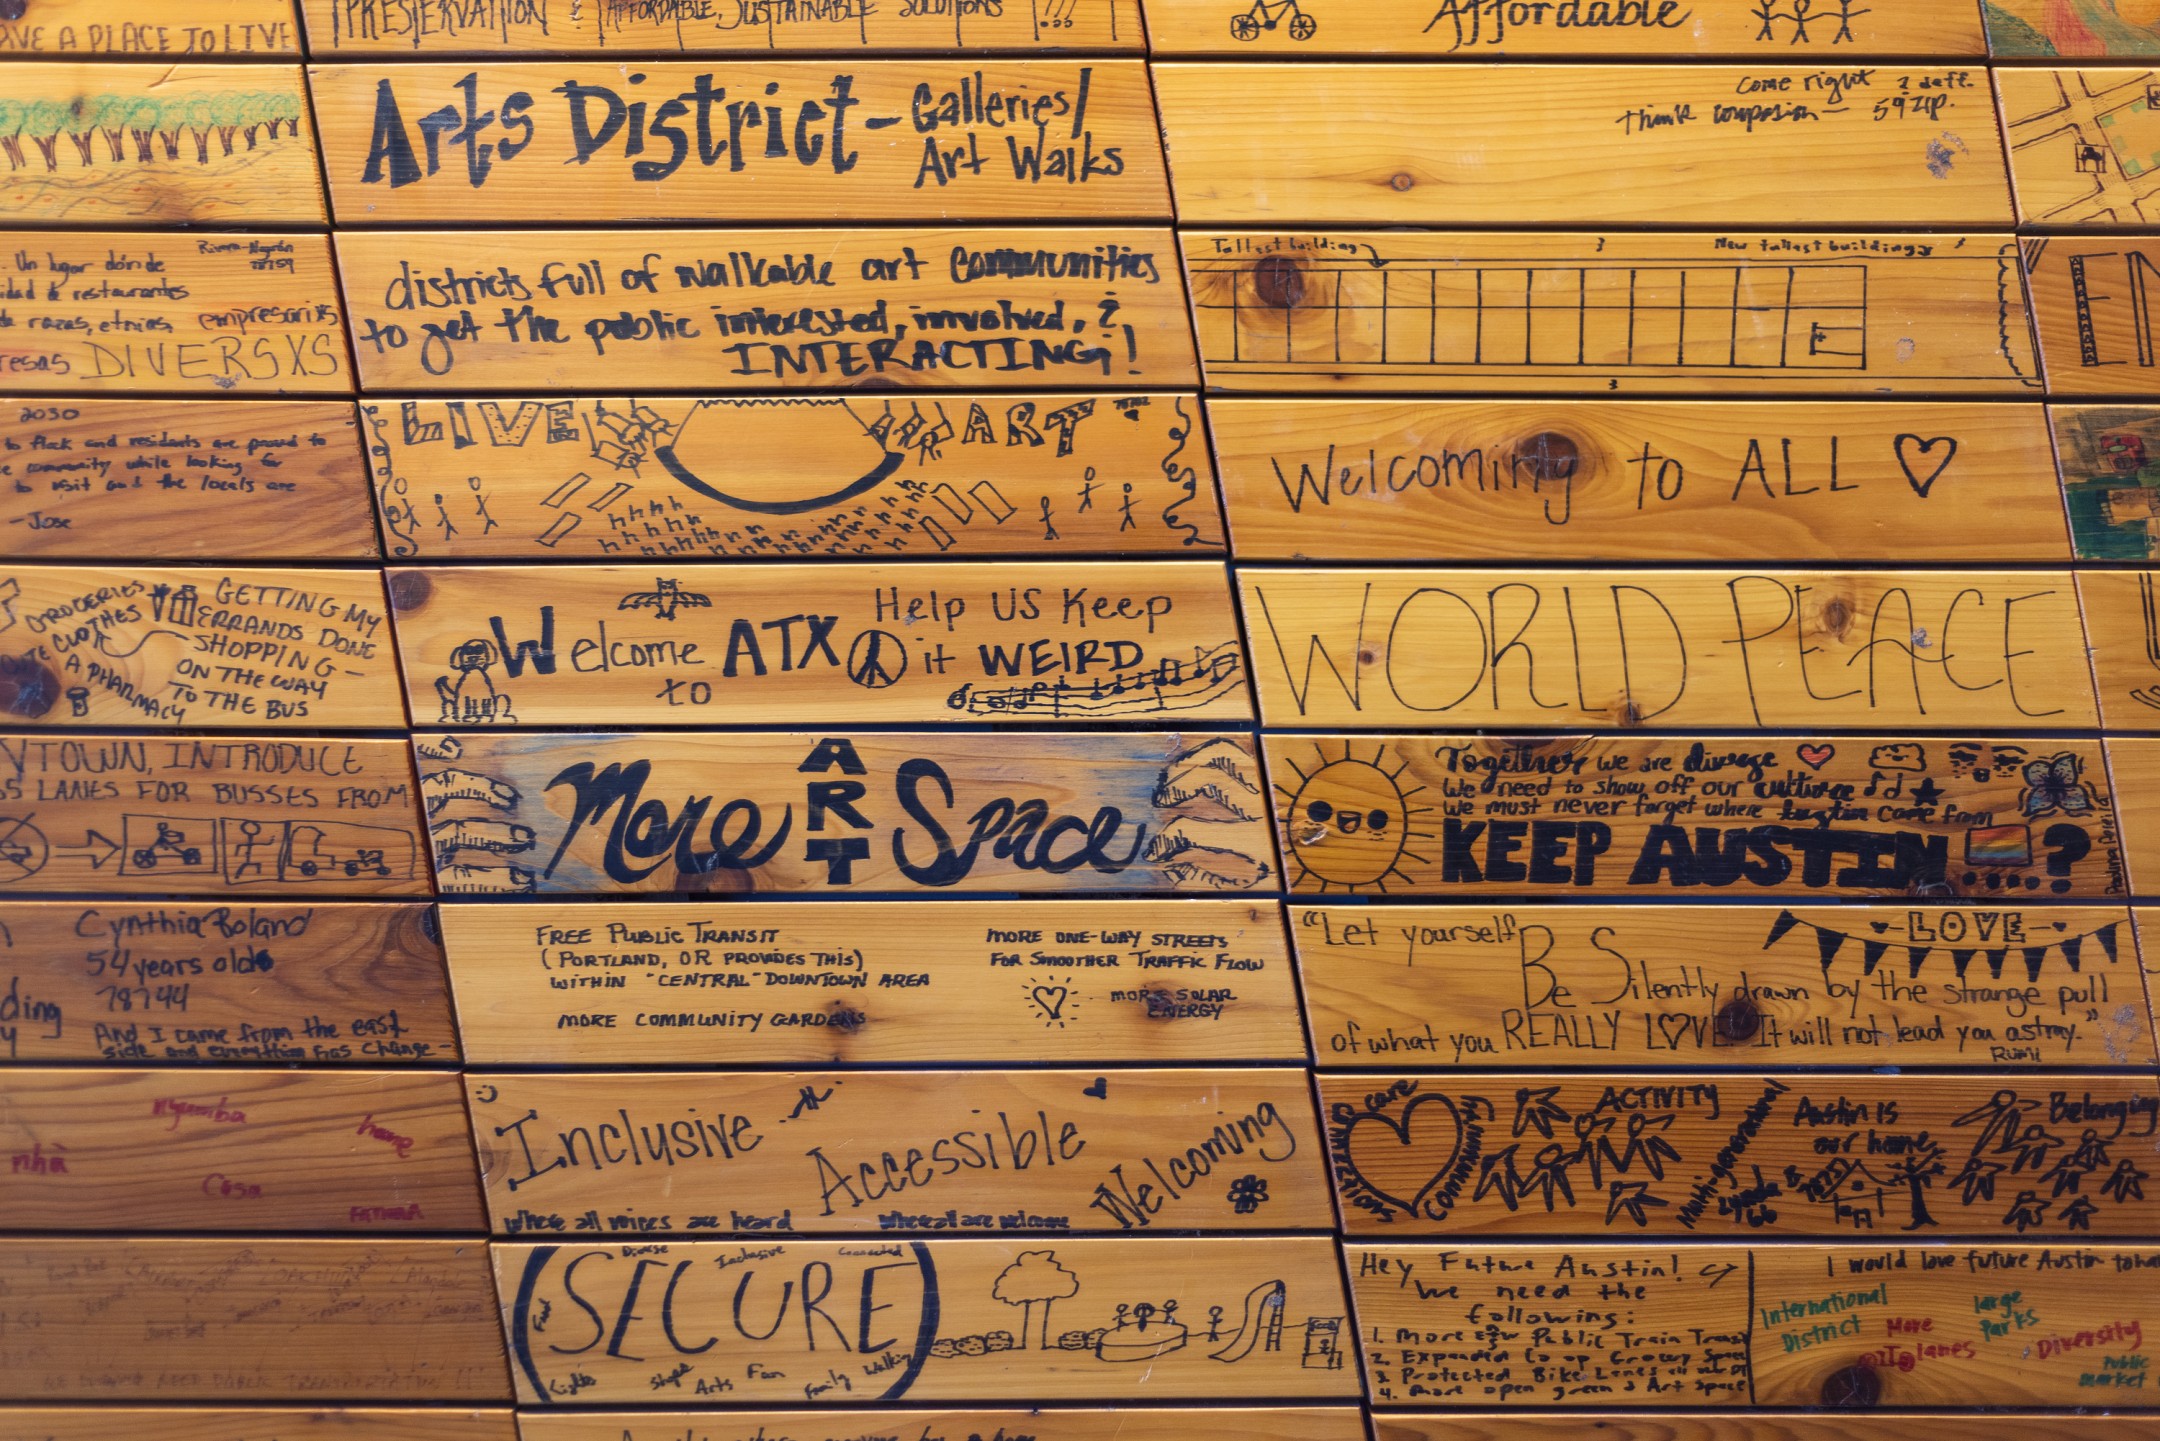 AVE A PLACE TO LIVE
PRESERVATION & AFFORDABLE, SUSTAINABLE SOLUTIONS !!!
Affordable
Arts District - Galleries/
Art Walks
Come right
think
Un lugar dónde
78759
restaurantes
razas, etnias, empresarixs
resas DIVERSXS
districts full of walkable art communities
to get the public interested, involved, &
INTERACTING!
Tallest building
New tallest building
2030
to flock and residents are proud to
community while looking for
to visit and the locals are
-Jose
LIVE ART
78702
Welcoming to ALL ♡
GROCERIES
CLOTHES
A PHARMACY
GETTING MY
ERRANDS DONE
SHOPPING -
ON THE WAY
TO THE BUS
Welcome
to
ATX
Help US Keep
it WEIRD
WORLD PEACE
TOWN, INTRODUCE
LANES FOR BUSSES FROM
More ART Space
Together we are diverse
We need to show off our culture
we must never forget where Austin came from
KEEP AUSTIN ....?
Cynthia Boland
54 years old
78744
ding
And I came from the east
side and everything has change-
FREE PUBLIC TRANSIT
(PORTLAND, OR PROVIDES THIS)
WITHIN "CENTRAL" DOWNTOWN AREA
MORE COMMUNITY GARDENS
MORE ONE-WAY STREETS
FOR SMOOTHER TRAFFIC FLOW
MORE SOLAR
ENERGY
-LOVE-
"Let yourself
Be Silently drawn by the strange pull
of what you REALLY LOVE It will not lead you astray."
RUMI
nyumba
home
nhà
Casa
Inclusive
Accessible
Welcoming
Where all voices are heard
Where all are welcome
care
Community
ACTIVITY
Multi-generational
Austin is
our home
Belonging
(SECURE)
Diverse
Inclusive
Connected
Lights
Arts
Fun
Family
Walking
Hey Future Austin!
We need the
following:
1. More Public Train
2. Expanded Co op Grocery
3. Protected Bike Lanes
4. More open green & Art Space
I would love future Austin to
International
District
More
lanes
large
Parks
Diversity
Public
market